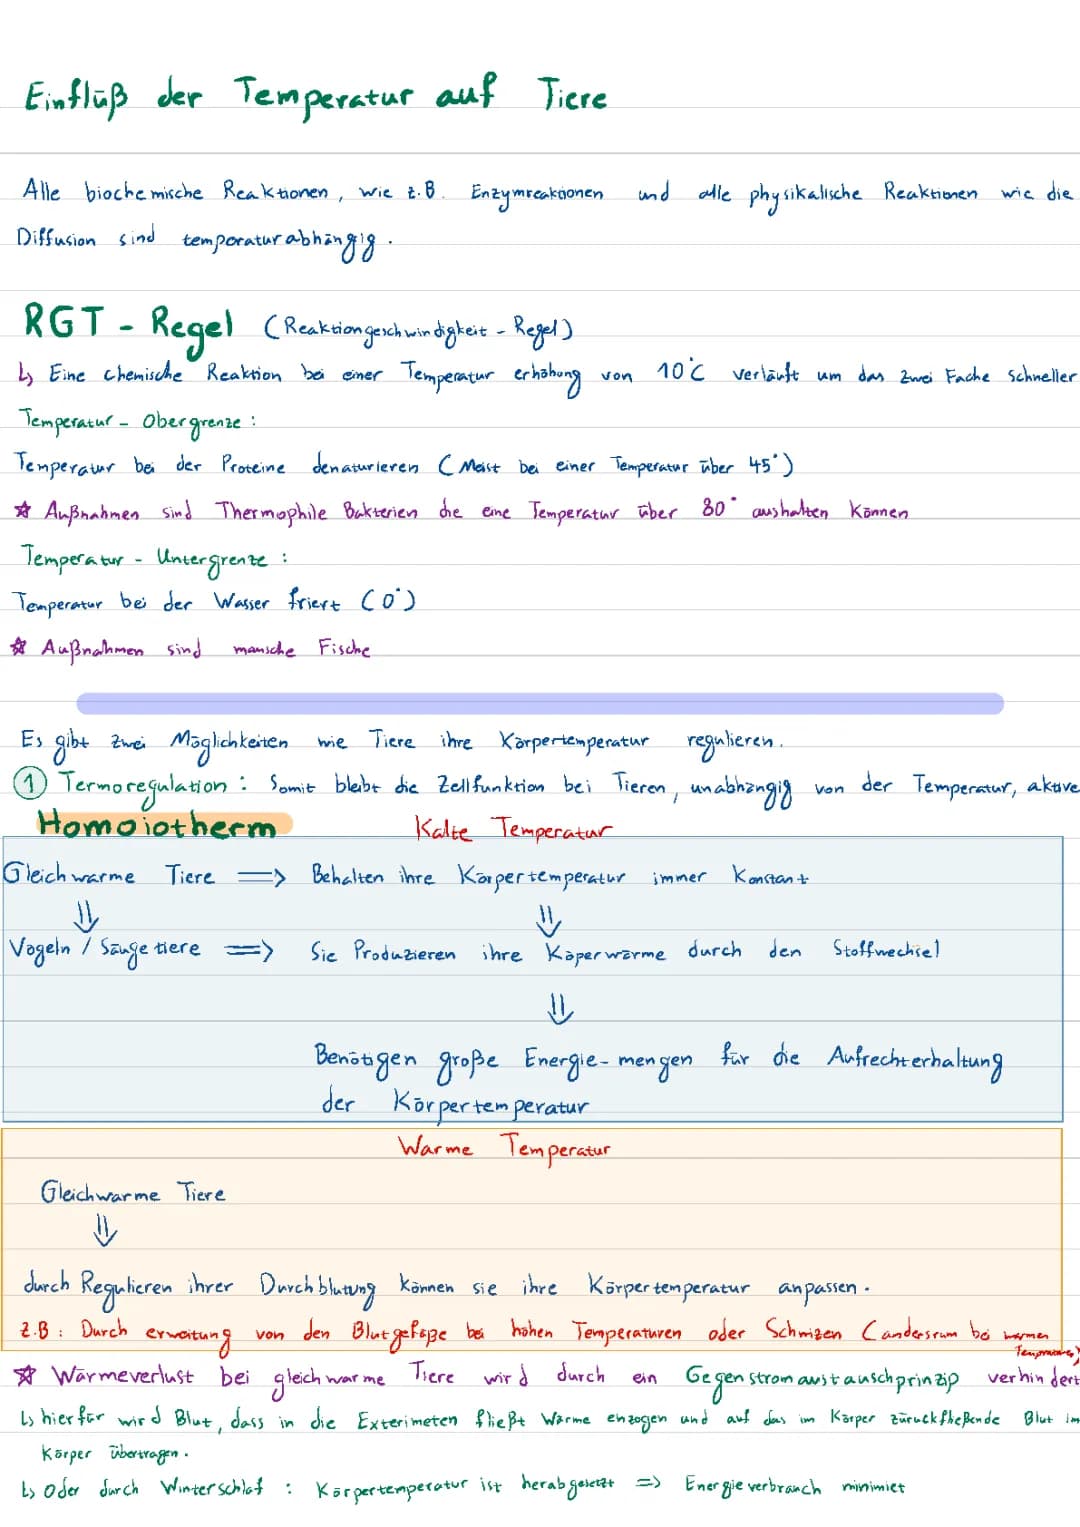 Einflūß der Temperatur auf Tiere
Alle biochemische Reaktionen, wie z.B. Enzymreaktionen und alle physikalische Reaktionen wie die
Diffusion sind temperaturabhängig.
RGT - Regel (Reaktiongeschwindigkeit - Regel)
↳ Eine chemische Reaktion bei einer Temperatur erhöhung von 10°C verläuft um das zwei Fache schneller
Temperatur - Obergrenze :
Temperatur bei der Proteine denaturieren (Meist bei einer Temperatur über 45°)
☆ Außnahmen sind Thermophile Bakterien die eine Temperatur über 80° aushalten können
Temperatur - Untergrenze :
Temperatur bei der Wasser friert (0°)
☆ Außnahmen sind mansche Fische
Es gibt zwei Möglichkeiten wie Tiere ihre Körpertemperatur regulieren.
① Termoregulation : Somit bleibt die Zellfunktion bei Tieren, unabhängig von der Temperatur, aktive
Homoiotherm
Kalte Temperatur
Gleichwarme Tiere ⇒ Behalten ihre Körpertemperatur immer Konstant
⇓ ⇓
Vögeln / Säugetiere ⇒ Sie Produzieren ihre Köperwärme durch den Stoffwechsel
⇓
Benötigen große Energie-mengen für die Aufrechterhaltung
der Körpertemperatur
Warme Temperatur
Gleichwarme Tiere
⇓
durch Regulieren ihrer Durchblutung können sie ihre Körpertemperatur anpassen.
z.B : Durch erweitung von den Blutgefäße bei hohen Temperaturen oder Schwizen (andersrum bei warmen
Temperaturen)
☆ Wärmeverlust bei gleichwarme Tiere wird durch ein Gegenstromaustauschprinzip verhindert
↳ hierfür wird Blut, dass in die Exterimeten fließt Wärme enzogen und auf das im Körper zürückfließende Blut im
Körper übertragen.
↳ Oder durch Winterschlaf : Körpertemperatur ist herabgesetzt ⇒ Energieverbrauch minimiet